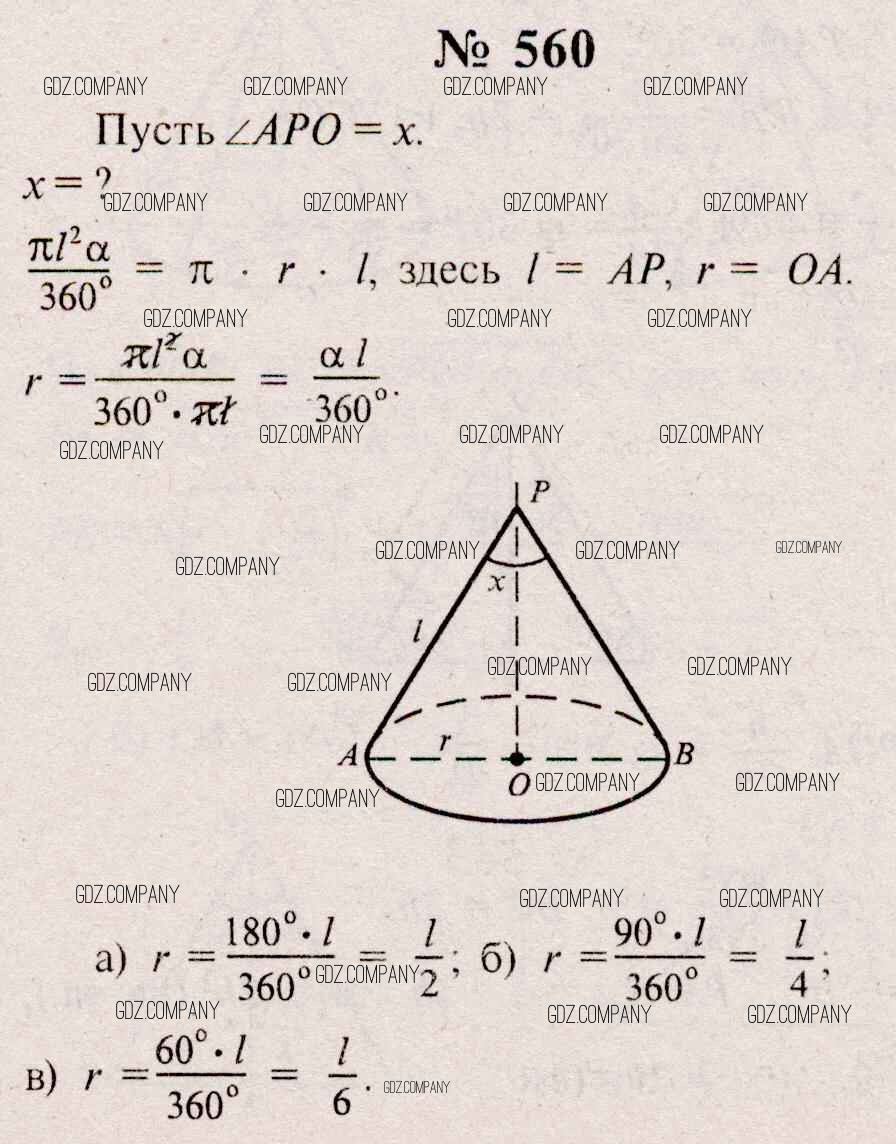 № 560
GDZ.COMPANY GDZ.COMPANY GDZ.COMPANY GDZ.COMPANY
Пусть ∠APO = x.
x = ?
GDZ.COMPANY GDZ.COMPANY GDZ.COMPANY GDZ.COMPANY
πl²α/360° = π · r · l, здесь l = AP, r = OA.
GDZ.COMPANY GDZ.COMPANY GDZ.COMPANY
r = πl²α/360° · πl = α l/360°.
GDZ.COMPANY GDZ.COMPANY GDZ.COMPANY GDZ.COMPANY
P
GDZ.COMPANY GDZ.COMPANY GDZ.COMPANY GDZ.COMPANY
x
l
GDZ.COMPANY GDZ.COMPANY GDZ.COMPANY GDZ.COMPANY
A r B
O
GDZ.COMPANY GDZ.COMPANY GDZ.COMPANY
GDZ.COMPANY GDZ.COMPANY GDZ.COMPANY
а) r = 180° · l/360° = l/2; б) r = 90° · l/360° = l/4;
GDZ.COMPANY
GDZ.COMPANY GDZ.COMPANY GDZ.COMPANY
в) r = 60° · l/360° = l/6.
GDZ.COMPANY